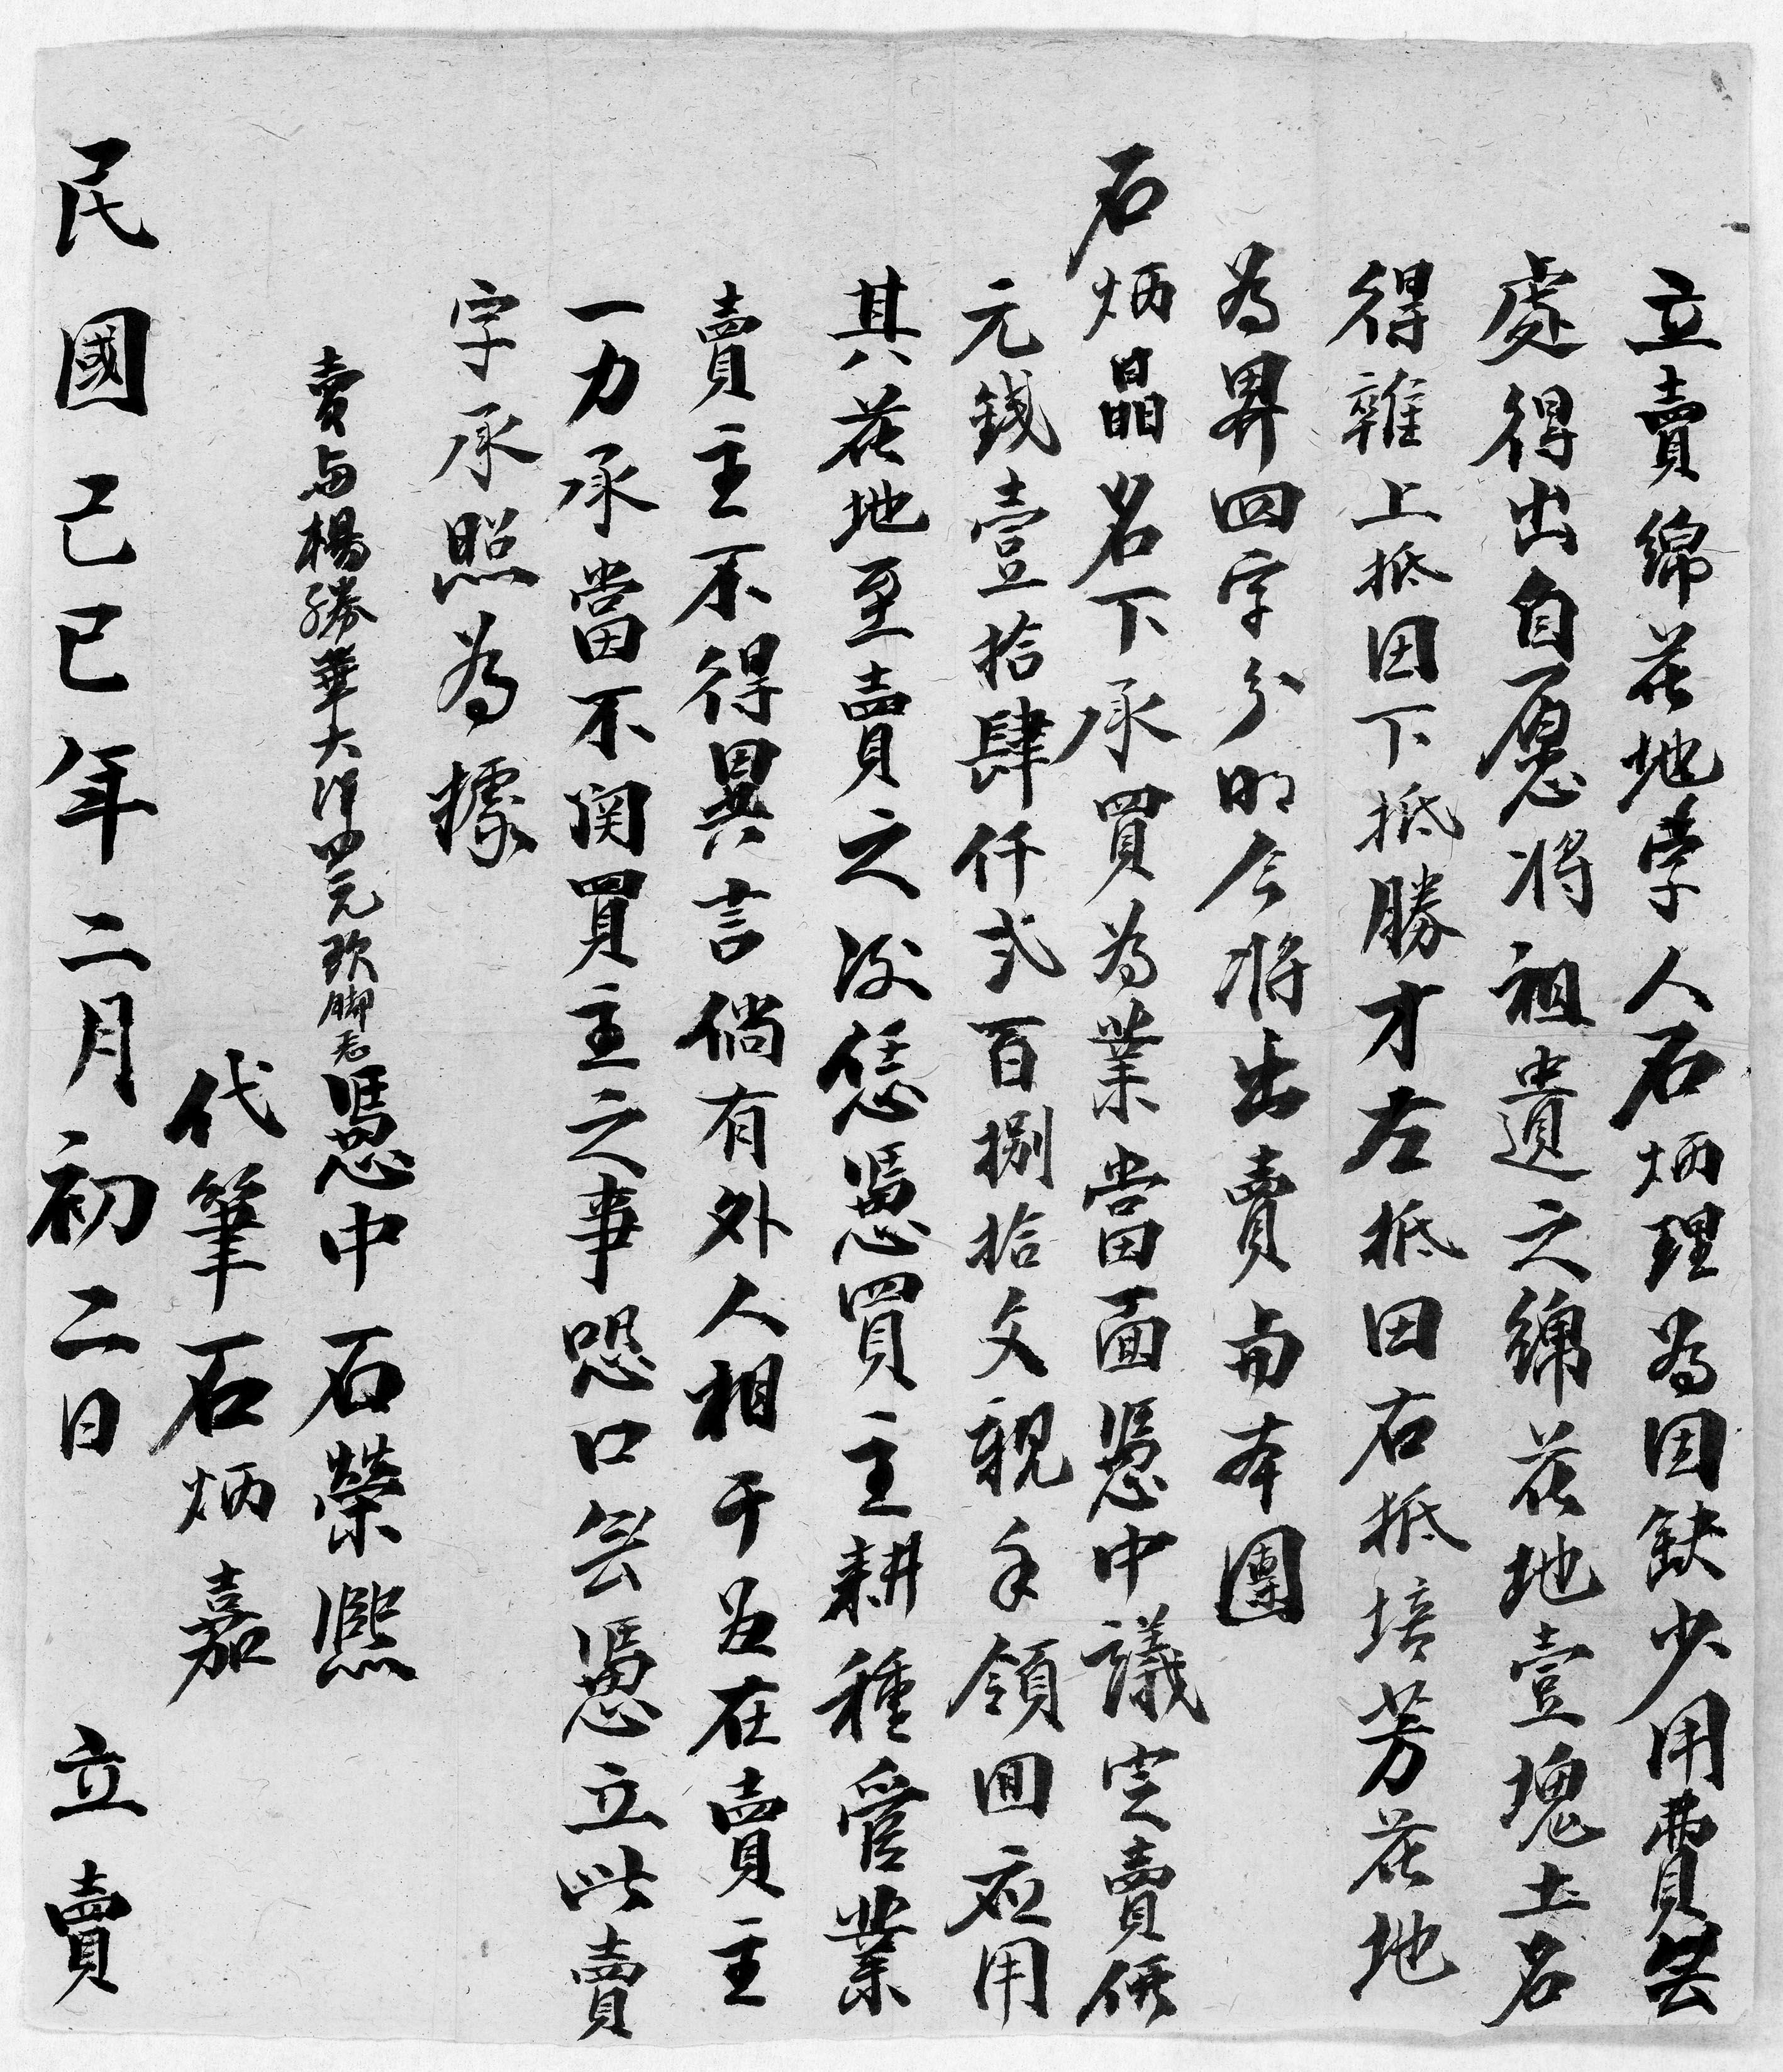 立賣綿花地字人石炳理為因缺少用費無
處得出自愿將祖遺之綿花地壹塊土名
得雜上抵田下抵勝才左抵田右抵培芳花地
為界四字分明今將出賣与本團
石炳晶名下承買為業當面憑中議定賣價
元錢壹拾肆仟弍百捌拾文親手領囬應用
其花地至賣之後恁憑買主耕種管業
賣主不得異言倘有外人相干並在賣主
一力承當不関買主之事恐口無憑立此賣
字承照為據
賣与楊勝華大洋四元 憑中 石榮熙
代筆 石炳嘉
民國己巳年二月初二日 立賣